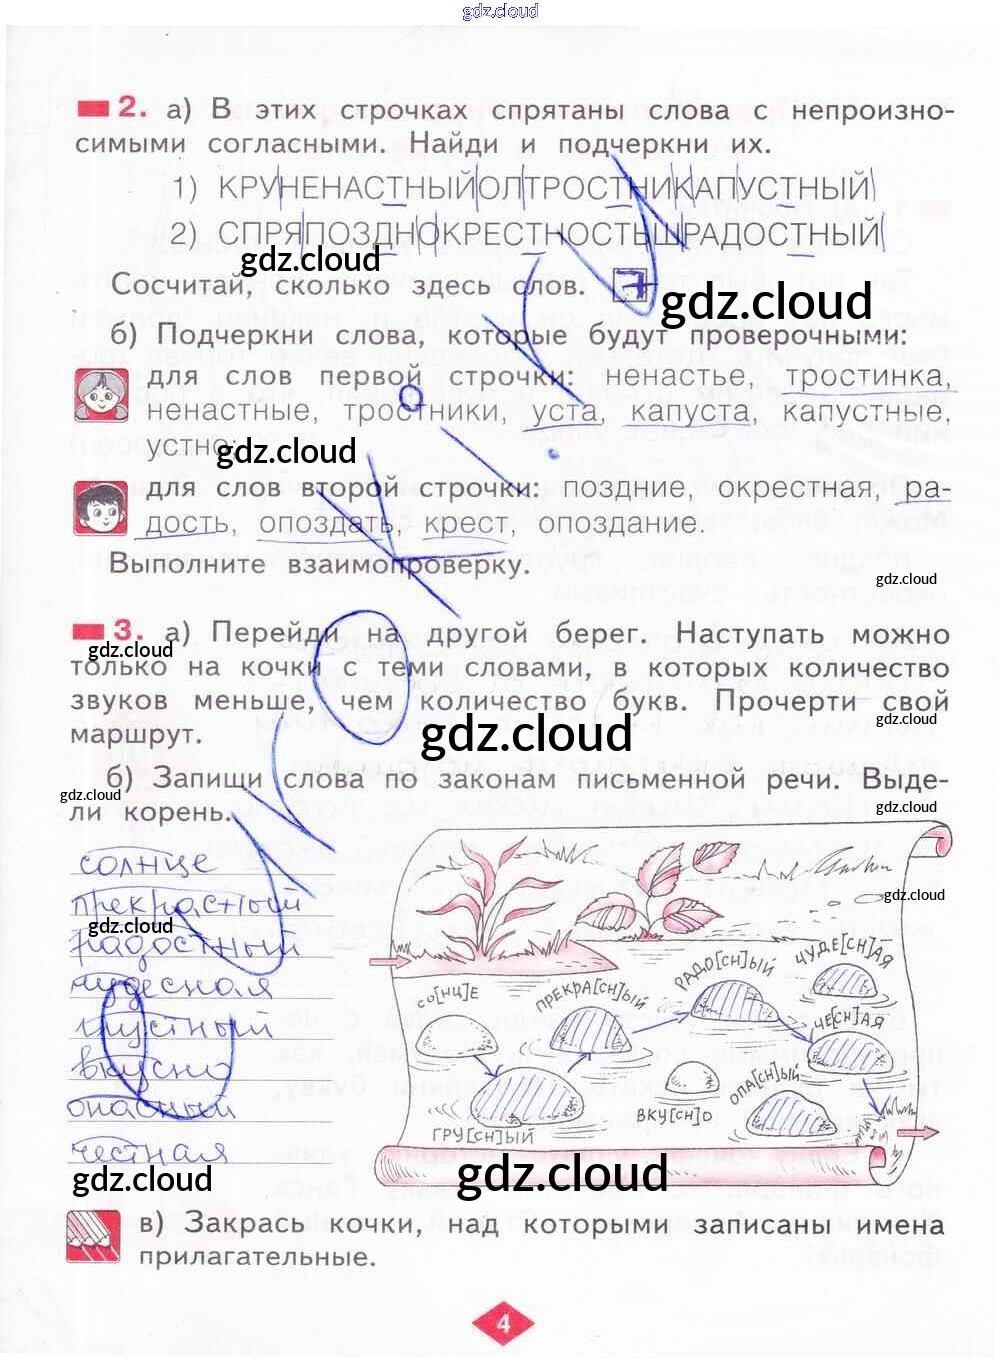 gdz.cloud
2. а) В этих строчках спрятаны слова с непроизно-
симыми согласными. Найди и подчеркни их.
1) КРУНЕНАСТНЫЙОЛТРОСТНИКАПУСТНЫЙ
2) СПРЯПОЗДНОКРЕСТНОСТЬШРАДОСТНЫЙ
gdz.cloud
Сосчитай, сколько здесь слов. 7
gdz.cloud
б) Подчеркни слова, которые будут проверочными:
для слов первой строчки: ненастье, тростинка,
ненастные, тростники, уста, капуста, капустные,
устно.
gdz.cloud
для слов второй строчки: поздние, окрестная, ра-
дость, опоздать, крест, опоздание.
Выполните взаимопроверку.
gdz.cloud
3. а) Перейди на другой берег. Наступать можно
gdz.cloud
только на кочки с теми словами, в которых количество
звуков меньше, чем количество букв. Прочерти свой
gdz.cloud
маршрут.
gdz.cloud
б) Запиши слова по законам письменной речи. Выде-
gdz.cloud
gdz.cloud
ли корень.
солнце
прекрасный
gdz.cloud
gdz.cloud
радостный
чудесная
грустный
вкусно
опасный
честная
СО[НЦ]Е
ПРЕКРА[СН]ЫЙ
РАДО[СН]ЫЙ
ЧУДЕ[СН]АЯ
ЧЕ[СН]АЯ
ОПА[СН]ЫЙ
ВКУ[СН]О
ГРУ[СН]ЫЙ
gdz.cloud
gdz.cloud
в) Закрась кочки, над которыми записаны имена
прилагательные.
4